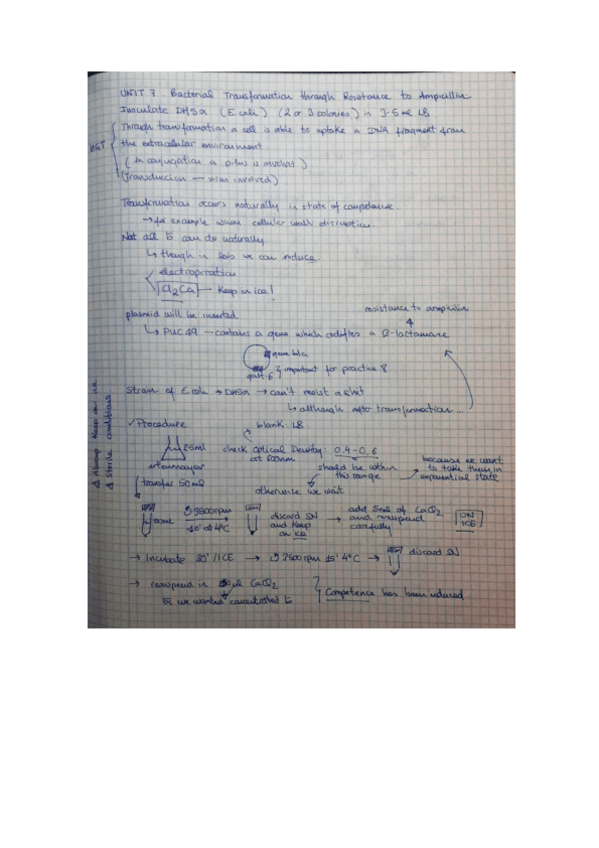 UNIT 7 Bacterial Transformation through Resistance to Ampicillin
Inoculate DH5α (E. coli) (2 or 3 colonies) in 3-5 ml LB
HGT
Through transformation a cell is able to uptake a DNA fragment from
the extracellular environment
(In conjugation a pilus is involved)
(Transduccion — virus involved)
Transformation occurs naturally in state of competence
→ for example when cellular wall disruption
Not all b can do naturally
↳ though in labs we can induce
electroporation
Cl2Ca — Keep in ice!
resistance to ampicillin
plasmid will be inserted
↳ PUC 19 — contains a gene which codifies a β-lactamase
gene bla
important for practice 8
Strain of E. coli → DH5α → can't resist a shit
↳ although after transformation...
✓ Procedure
blank: LB
25ml
check Optical Density: 0.4-0.6
at 600nm
because we want
to take them in
exponential state
erlenmayer
should be within
this range
transfer 50ml
otherwise we wait
50ml
3500rpm
15' at 4ºC
discard SN
and Keep
on ICE
add 5ml of CaCl2
and resuspend
carefully
ON
ICE
→ Incubate 30' / ICE → 2500rpm 15' 4ºC → discard SN
→ resuspend in CaCl2
we wanted concentrated b
Competence has been induced
Δ Always Keep on ice
Δ Sterile conditions